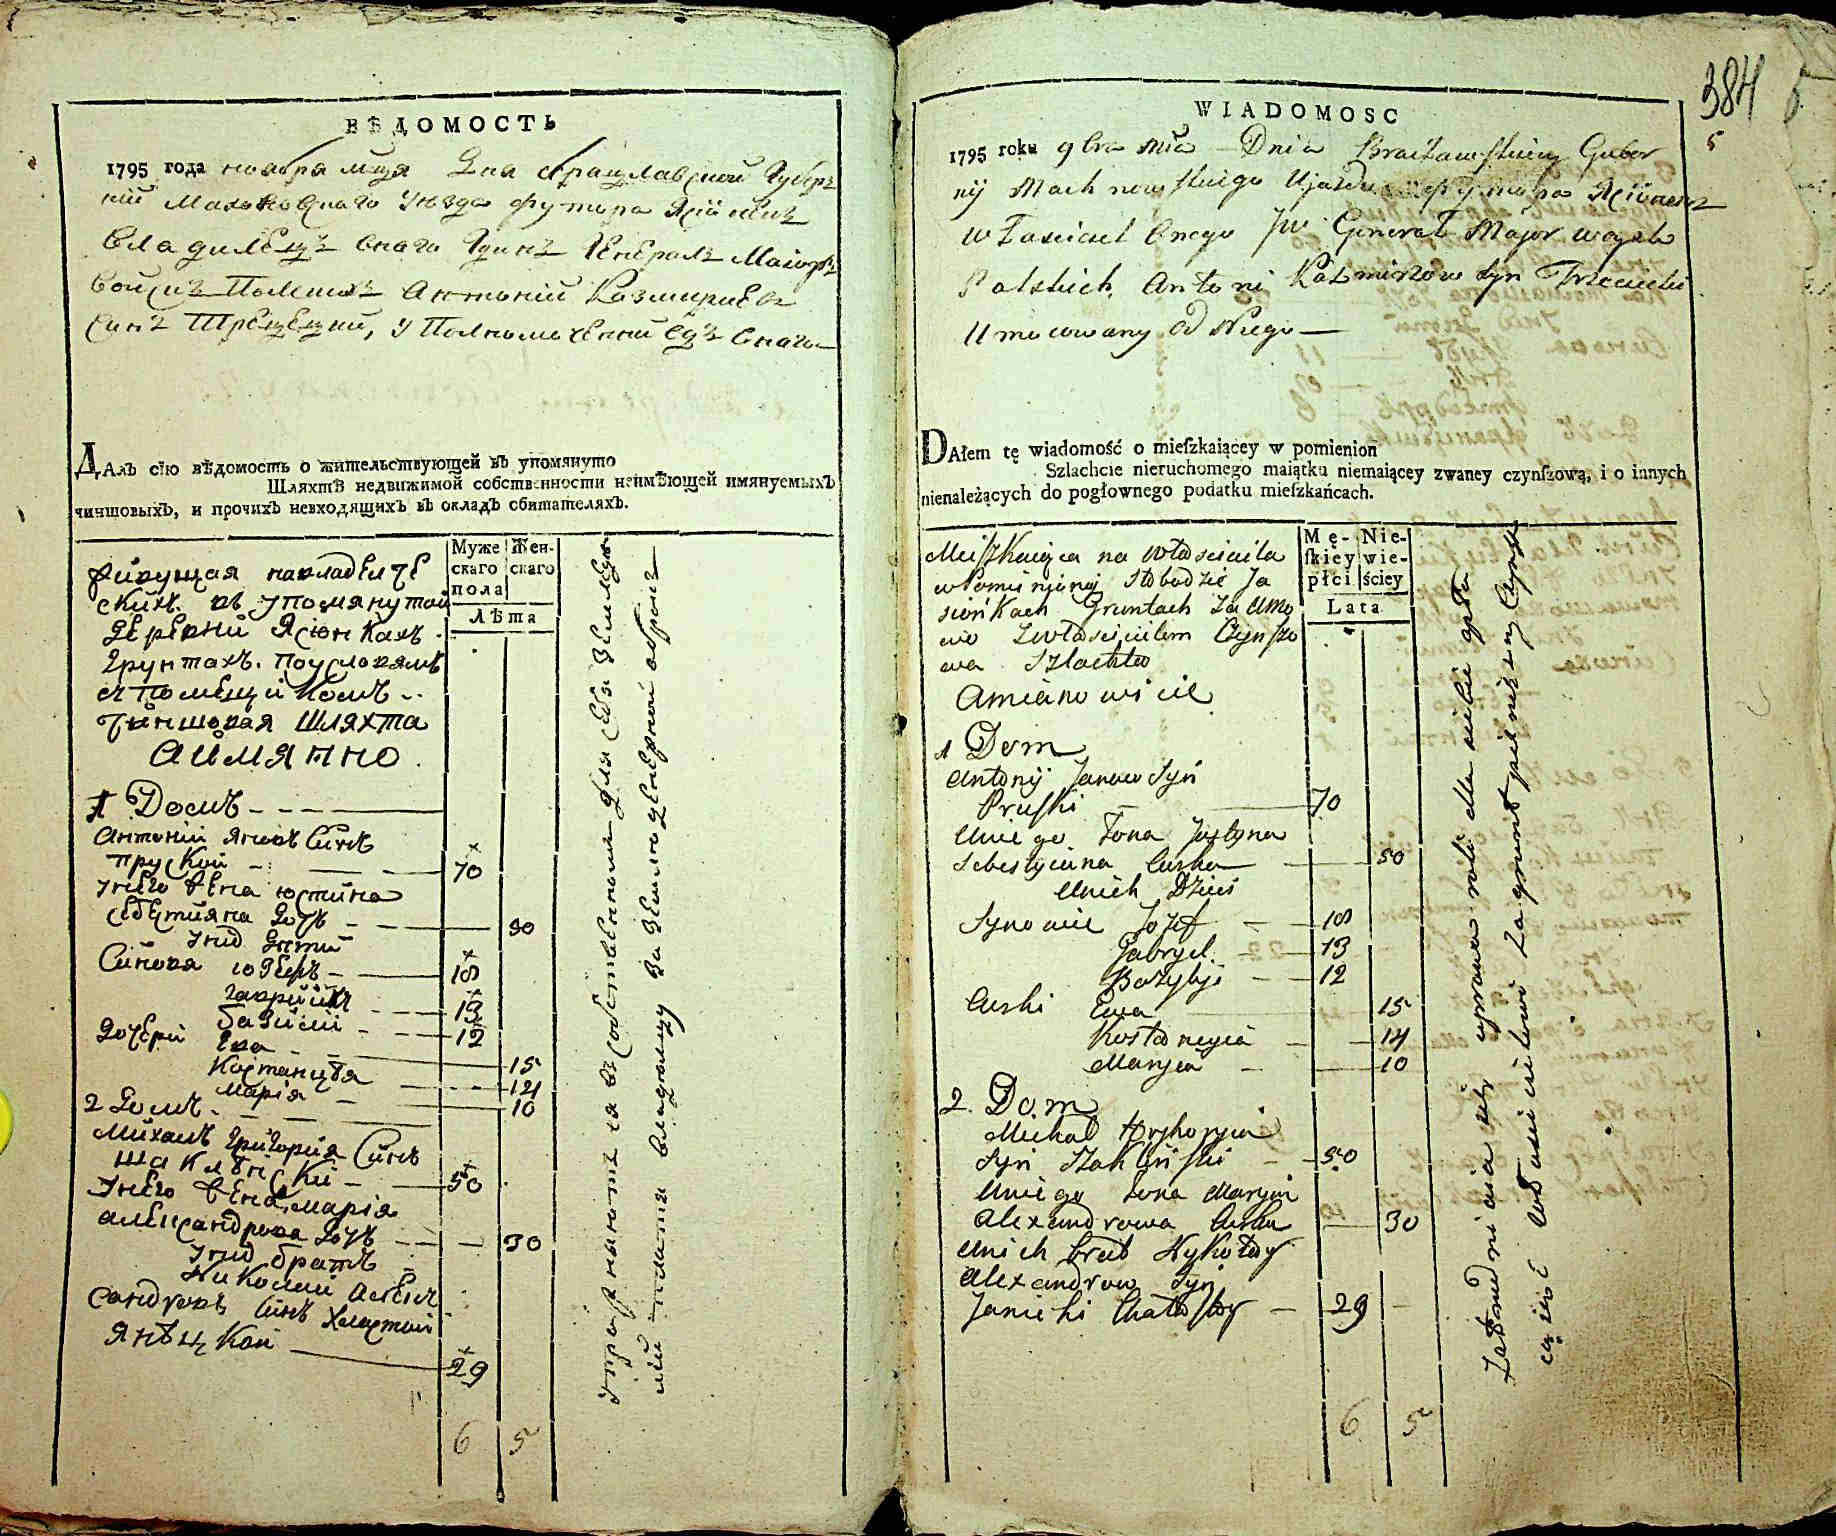 ВѢДОМОСТЬ
1795 года ноября мца Дня Брацлавской Губер
ній Махновского Уезда футора Ясіонекъ
Владилецъ Онаго Генералъ Маіоръ
Войскъ Полскихъ Антоній Казмировъ
Синъ Трецецкий, Уполномоченній Одъ Онаго
ДАлъ сію вѣдомость о жительствующей въ упомянуто
Шляхтѣ недвижимой собственности неимѣющей имянуемыхъ
чиншовыхъ, и прочихъ невходящихъ въ окладъ обитателяхъ.
Муже Жен-
скаго скаго
пола
Лѣта
Живущая навладелче
скихъ въ упомянутой
Деревни Ясіонкахъ
Грунтахъ. поусловямъ
съ Помещикомъ
Чиншовая Шляхта
Аимянно
1 Домъ
Антоній Яновъ Синъ
Пруской 70
Унего Жена Юстина
Себестияна Дочъ 50
Унид Дитий
Синовя Юзефъ 18
Гаврийлъ 13
Базилій 12
Дочери Ева 15
Костанция 14
Марія 10
2 Домъ
Михаилъ Григория Синъ
Шаклѣнски 50
Унего Жена Марія
Александрова Дочъ 30
Унид братъ
Николай Алек
сандровъ Синъ Халастий
Янѣцкой 29
6 5
Упражняются въ собственномъ для себя
платя владелцу за землю денежный оброкъ
384
5
WIADOMOSC
1795 roku 9bra Mca Dnia Bracławskiey Guber
nij Machnowskiego Ujazdu Futora Asiónek
Właściciel Onego Jw. General Major woysk
Polskich Antoni Kazmirzow Syn Trzecieski
Umocowany Od Niego
DAłem tę wiadomość o mieſzkaiącey w pomienion
Szlachcie nieruchomego maiątku niemaiącey zwaney czynſzową, i o innych
nienależących do pogłownego podatku mieſzkańcach.
Mę- Nie-
ſkiey wie-
płci ściey
Lata
Mieszkaiąca na Włościcila
wPomienionéj Słobodzie Ja
siońkach Gruntach Za Umo
wo zWłaścicilem Czynszo
wa Szlachta
Amianowicie
1 Dom
Antonij Janow Syn
Pruski 70
Uniego Żona Justyna
Sebestyiana Curka 50
Unich Dzieci
Synowie Jozef 18
Gabryel 13
Bazylyi 12
Curki Ewa 15
Kostancyia 14
Maryia 10
2. Dom
Michał Hryhoryia
Syn Szakliński 50
Uniego Żona Maryia
Alexandrowa Curka 30
Unich brat Mykołay
Alexandrow Syn
Janicki Chałasty 29
6 5
Zatrudniaia się uprawa roli dla siebie
Zagrunt pieniężny Czynsz